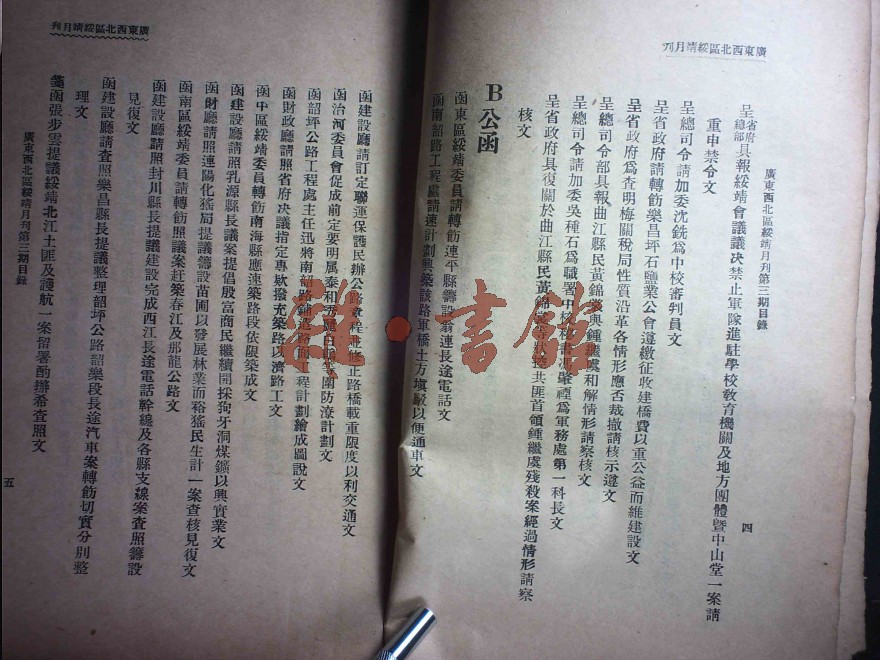 刊月靖綏區北西東廣
廣東西北區綏靖月刊第三期目錄
四
呈省府總部具報綏靖會議議决禁止軍隊進駐學校敎育機關及地方團體暨中山堂一案請
重申禁令文
呈總司令請加委沈銑爲中校審判員文
呈省政府請轉飭樂昌坪石鹽業公會遵繳征收建橋費以重公益而維建設文
呈省政府爲查明梅關稅局性質沿革各情形應否裁撤請核示遵文
呈總司令部具報曲江縣民黃錦 與鍾繼虞和解情形請察核文
呈總司令請加委吳種石爲職署中校秘書馮肇禋爲軍務處第一科長文
呈省政府具復關於曲江縣民黃錦 共匪首領鍾繼虞殘殺案經過情形請察
核文
B公函
函東區綏靖委員請轉飭連平縣籌設翁連長途電話文
函南韶路工程處請速計劃興築該路軍橋土方塡 以便通車文
刊月靖綏區北西東廣
函建設廳請訂定聯運保護民辦公路章程兼修正路橋載重限度以利交通文
函治河委員會促成前定要明属泰和秀麗白 圍防潦計劃文
函韶坪公路工程處主任迅將南韶路鋪造路面工程計劃繪成圖說文
函財政廳請照省府决議指定專欵撥充築路以濟路工文
函中區綏靖委員轉飭南海縣應速築路段依限築成文
函建設廳請照乳源縣長議案提倡殷富商民繼續開採狗牙洞煤鑛以興實業文
函財廳請照連陽化猺局提議籌設苗圃以發展林業而裕猺民生計一案查核見復文
函南區綏靖委員請轉飭照議案赶築春江及那龍公路文
函建設廳請照封川縣長提議建設完成西江長途電話幹線及各縣支線案查照籌設
見復文
函建設廳請查照樂昌縣長提議整理韶坪公路韶樂段長途汽車案轉飭切實分別整
理文
箋函張步雲提議綏靖北江土匪及護航一案留署酌辦希查照文
廣東西北區綏靖月刊第三期目錄
五
雜·書館